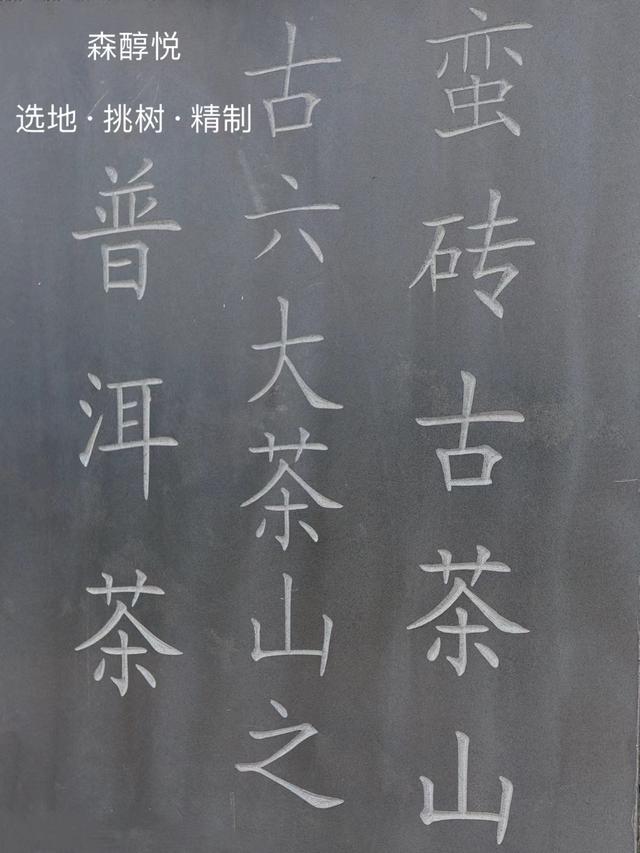 森醇悦
选地·挑树·精制
蛮砖古茶山
古六大茶山之
普洱茶